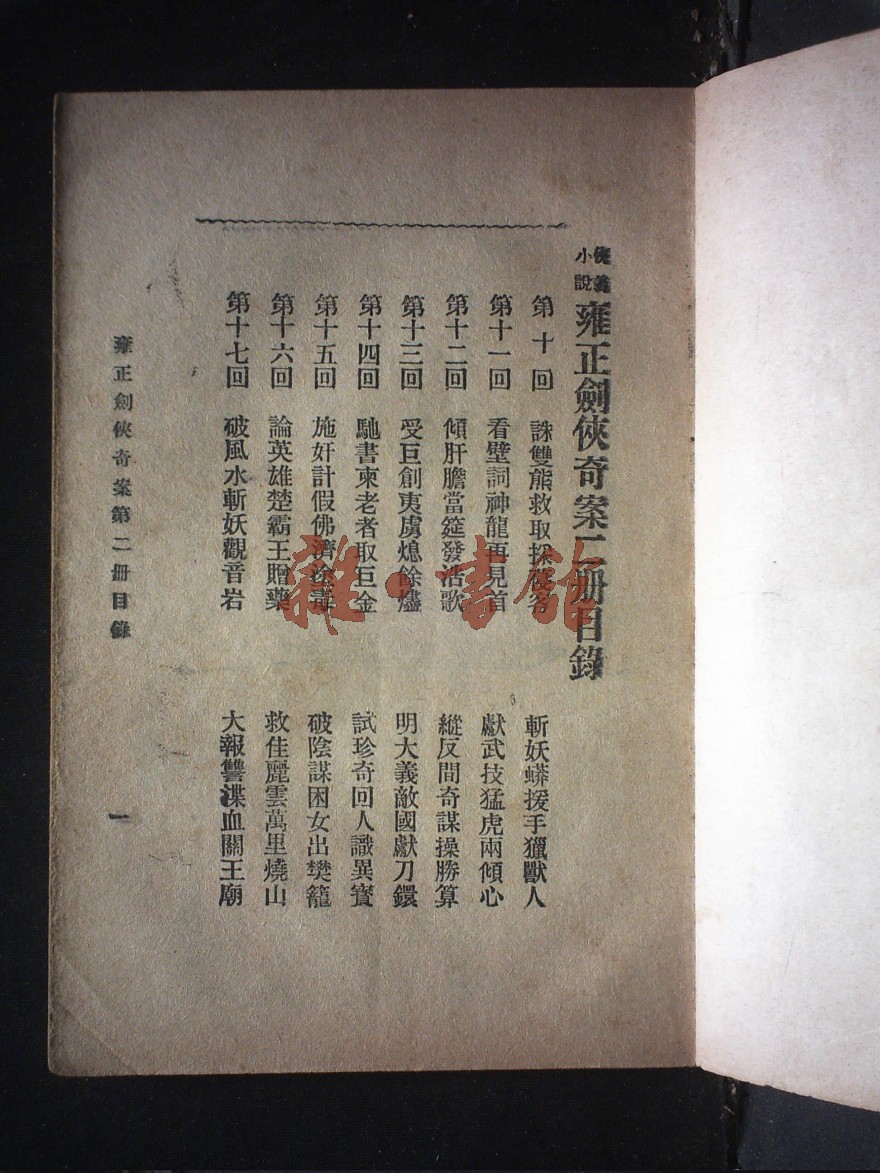 俠義小說 雍正劍俠奇案二册目錄
第十回 誅雙熊救取採 客 斬妖蟒援手獵獸人
第十一回 看壁詞神龍再見首 獻武技猛虎兩傾心
第十二回 傾肝膽當筵發浩歌 縱反間奇謀操勝算
第十三回 受巨創夷虜熄餘燼 明大義敵國獻刀鐶
第十四回 馳書柬老者取巨金 試珍奇回人識異寶
第十五回 施奸計假佛濟淫毒 破陰謀困女出樊籠
第十六回 論英雄楚霸王贈藥 救佳麗雲萬里燒山
第十七回 破風水斬妖觀音岩 大報讐渫血關王廟
雍正劍俠奇案第二册目錄 一
雜·書館